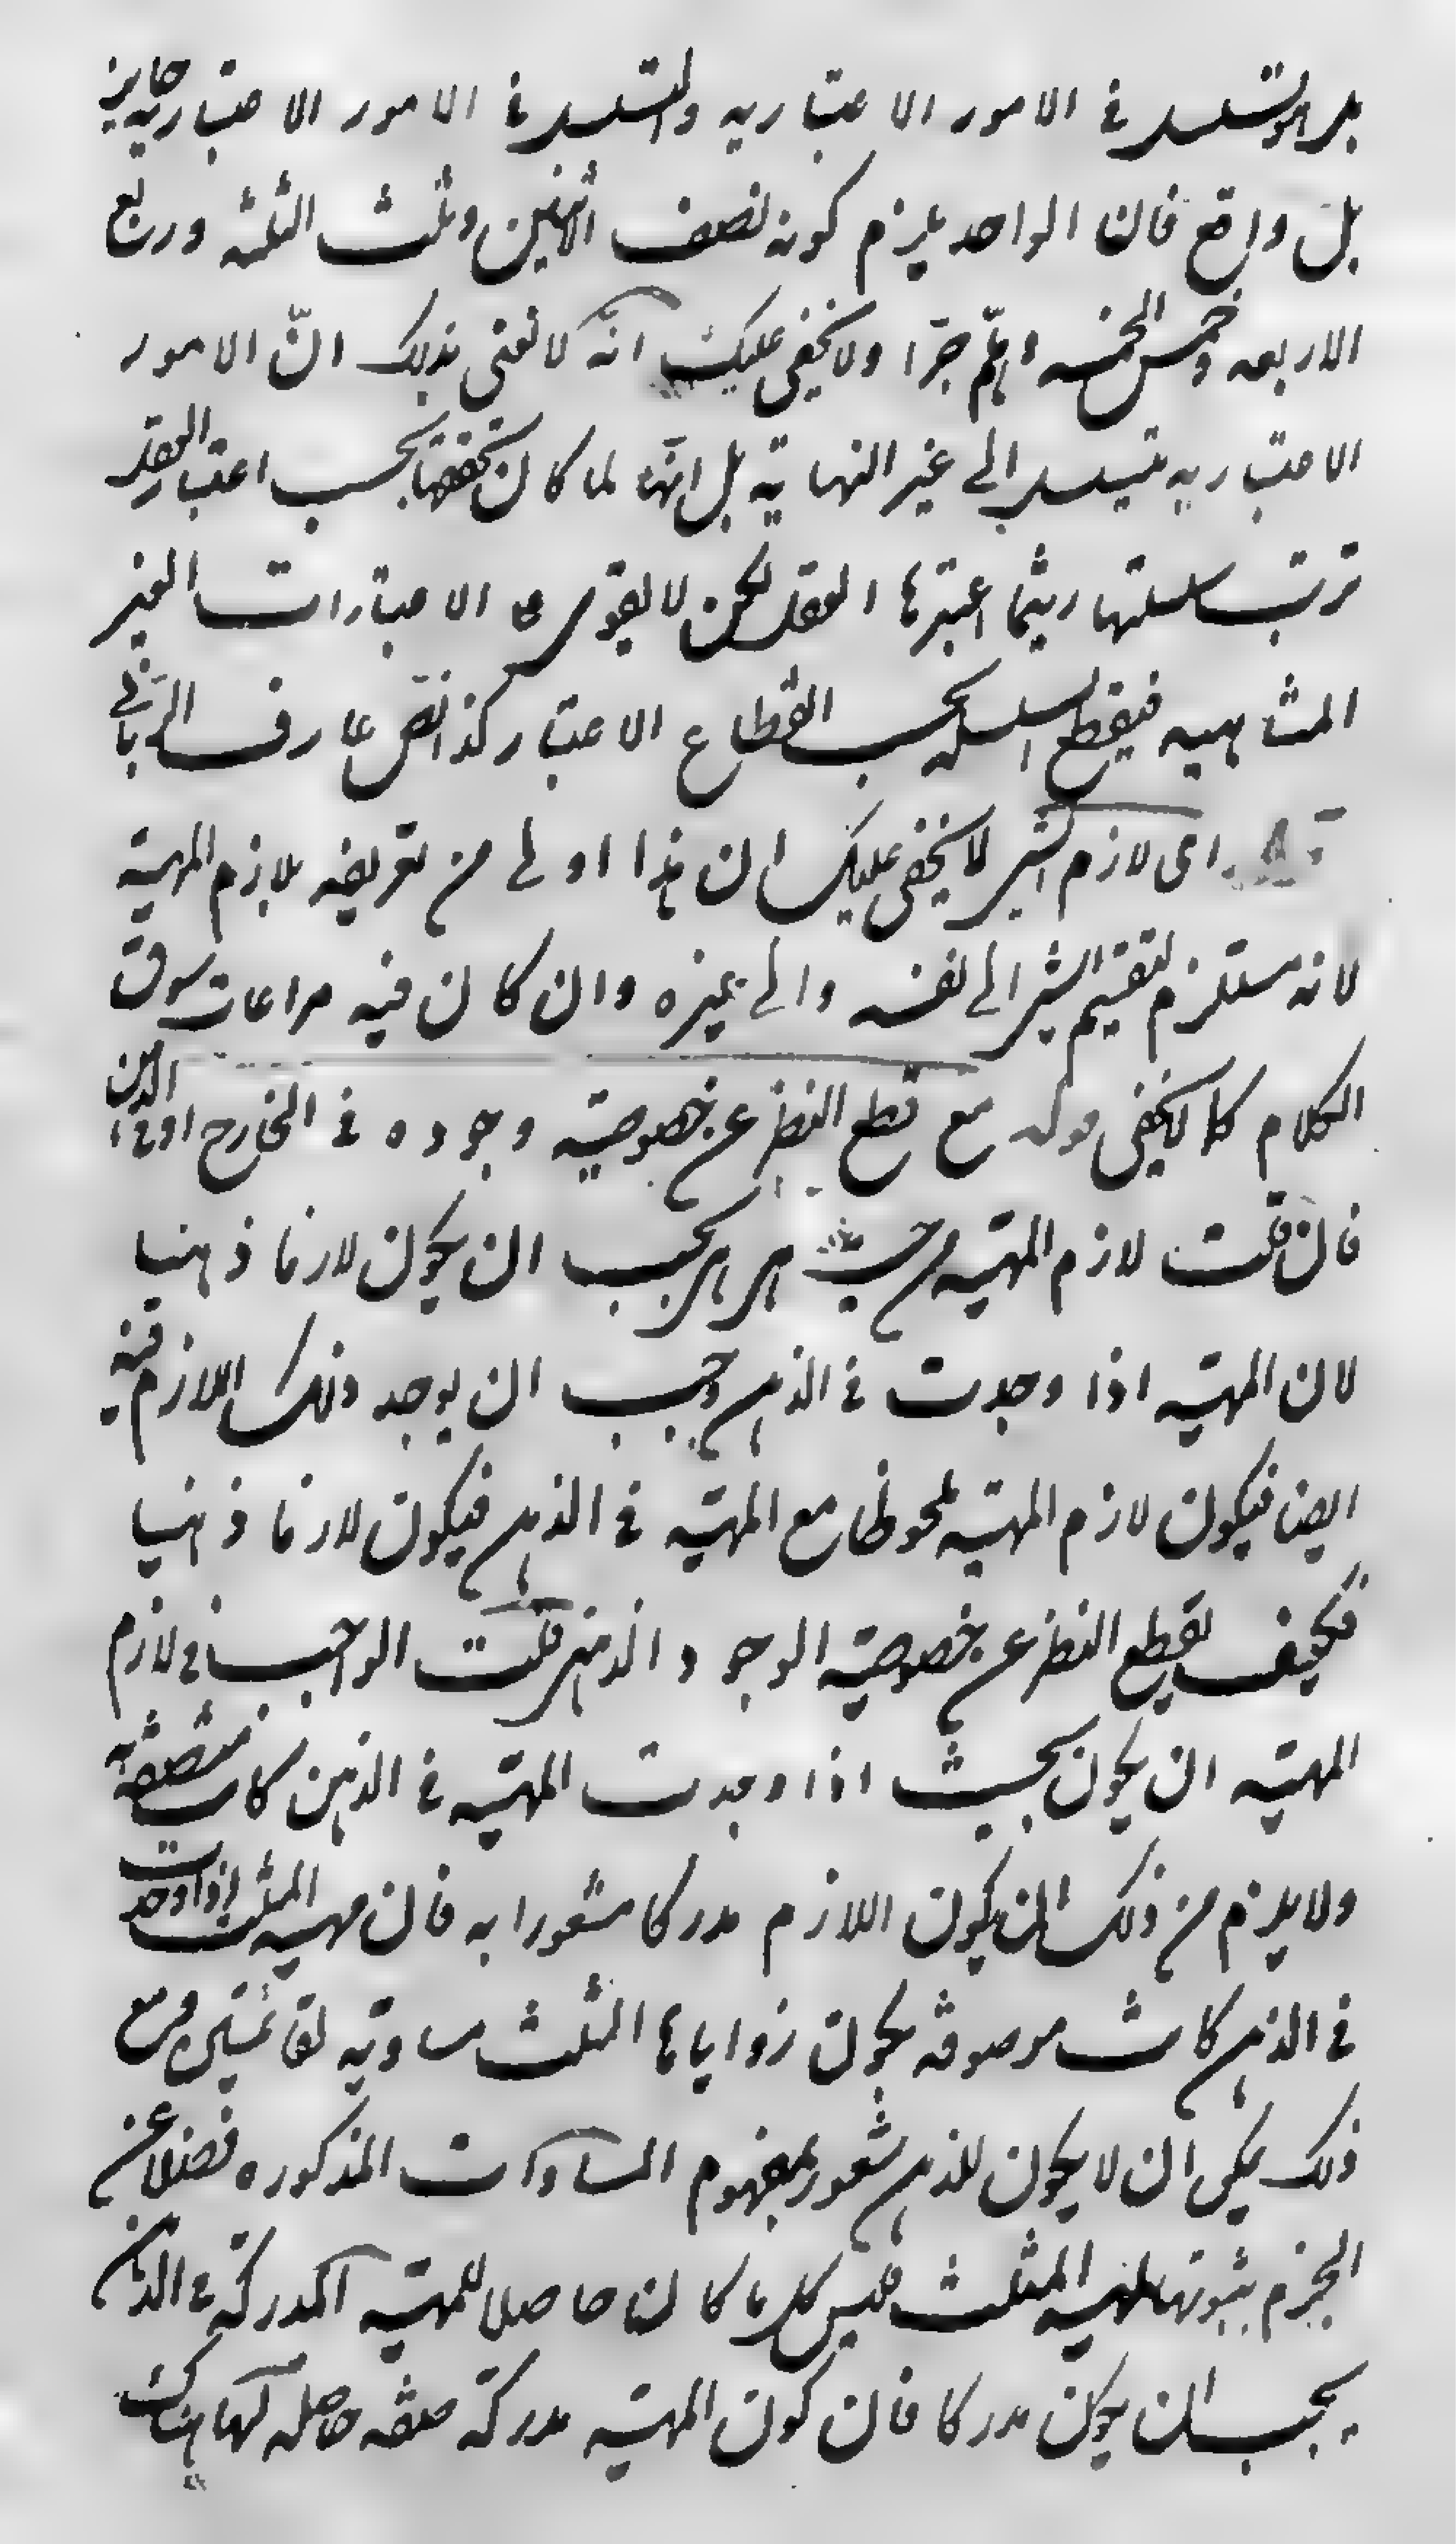 بل هو تسلسل فى الامور الاعتباريه والتسلسل فى الامور الاعتباريه جايز
بل واقع فان الواحد يلزم كونه نصف الاثنين وثلث الثلثه وربع
الاربعه وخمس الخمسه وهلمّ جرّا ولا يخفى عليك انه لا نعنى بذلك انّ الامور
الاعتباريه تتسلسل الى غير النهاية بل انّها لما كان تحققها بحسب اعتبار العقل
ترتب سلسلتها ريثما اعتبرها العقل لكن لا يقوى على الاعتبارات الغير
المتناهيه فينقطع السلسله بحسب انقطاع الاعتبار كذا نصّ عارف الربانى
اى لازم الشى لا يخفى عليك ان هذا اولى من تعريفه بلازم المهية
لانه مستلزم لتقسيم الشى الى نفسه والى غيره وان كان فيه مراعات سوق
الكلام كما لا يخفى قوله مع قطع النظر عن خصوصية وجوده فى الخارج او فى الذهن
فان قلت لازم المهيّه من حيث هى هى يجب ان يكون لازما ذهنيا
لان المهيّه اذا وجدت فى الذهن وجب ان يوجد ذلك اللازم فيه
ايضا فيكون لازم المهيّه ملحوظا مع المهيّه فى الذهن فيكون لازما ذهنيا
فكيف يقطع النظر عن خصوصيّة الوجود الذهنى قلت الواجب فى لازم
المهيّه ان يكون بحيث اذا وجدت المهيّه فى الذهن كانت متصفة به
ولا يلزم من ذلك ان يكون اللازم مدركا مشعورا به فان مهيه المثلث اذا وجدت
فى الذهن كانت موصوفه بكون زواياها الثلث مساويه لقائمتين ومع
ذلك يمكن ان لا يكون للذهن شعور بمفهوم المساوات المذكوره فضلا عن
الجزم بثبوتها لمهيه المثلث فليس كل ما كان حاصلا للمهيّه المدركة فى الذهن
يجب ان يكون مدركا فان كون المهيّه مدركة صفه حاصله لها هناك